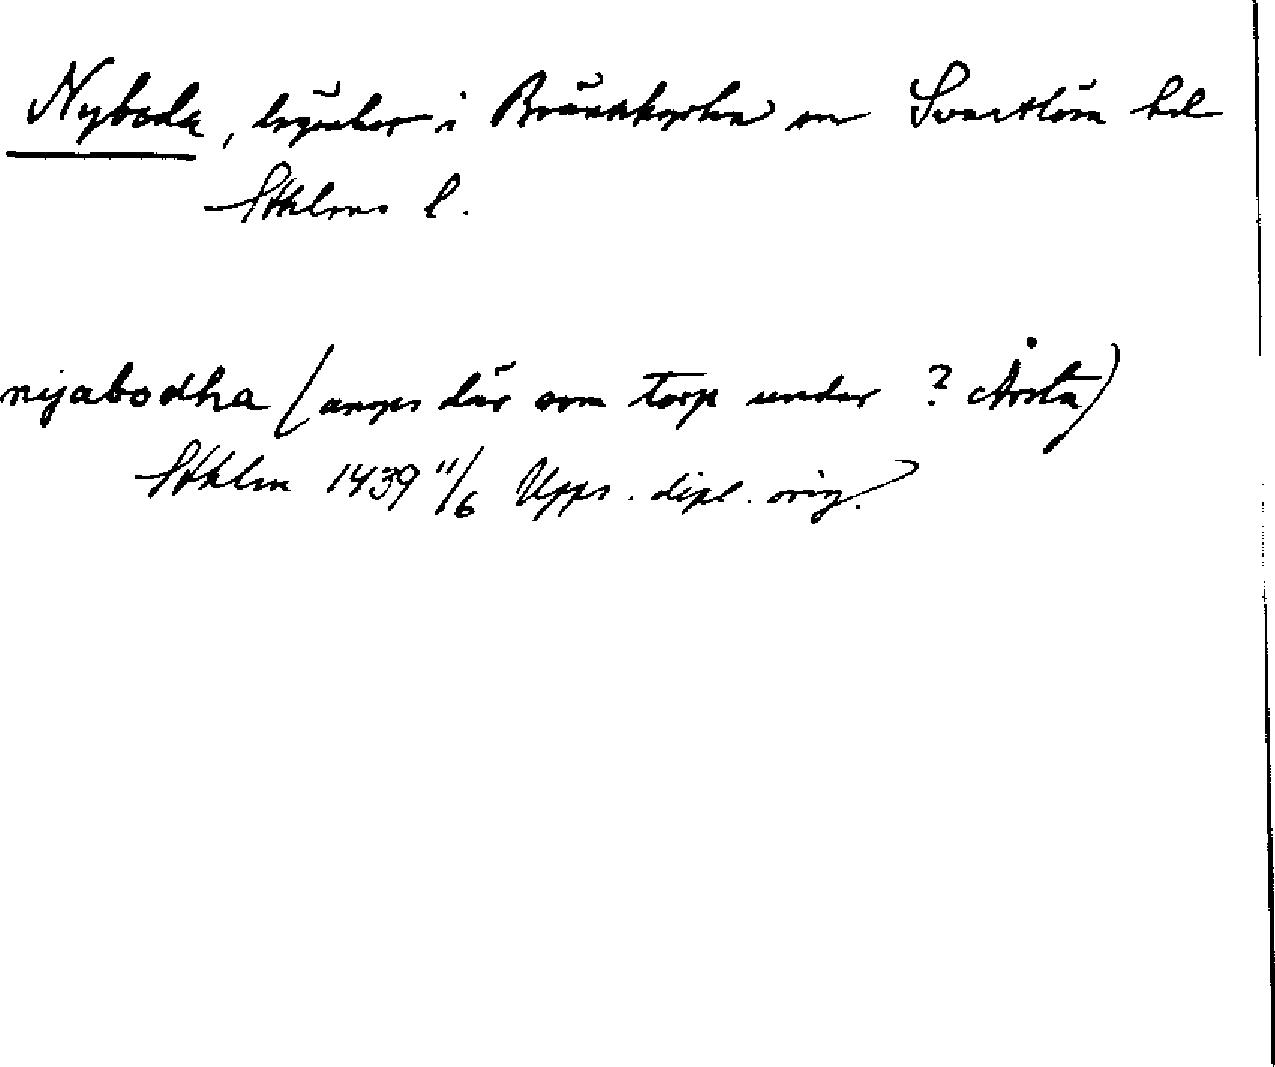 Nyboda, lägenhet i Brännkyrka sn Svartlösa hd
Sthlms l.
nyabodha (anges där som torp under ? Årsta)
Sthlm 1439 11/6 Upps. dipl. orig.